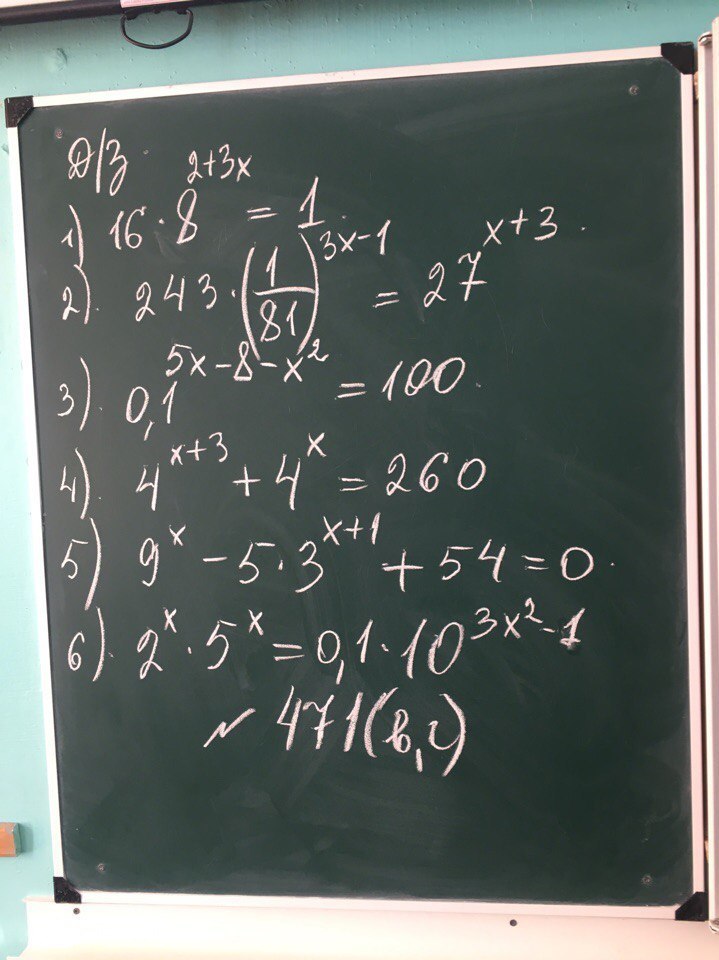 Д/З.
1) 16·8^{2+3x} = 1.
2). 243·(1/81)^{3x-1} = 27^{x+3}.
3). 0,1^{5x-8-x^2} = 100.
4). 4^{x+3} + 4^x = 260
5) 9^x - 5·3^{x+1} + 54 = 0.
6). 2^x · 5^x = 0,1·10^{3x^2-1}
№ 471(в,г)